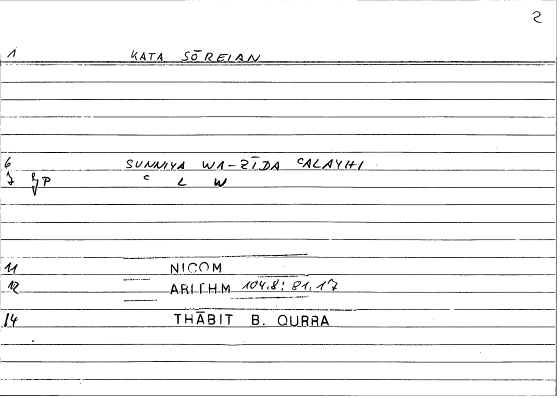 2
1 KATA SŌREIAN
6 SUNNIYA WA-ZĪDA ʿALAYHI
ʿ L W
11 NICOM
12 ARITHM 104.8; 81.17
14 THĀBIT B. QURRA